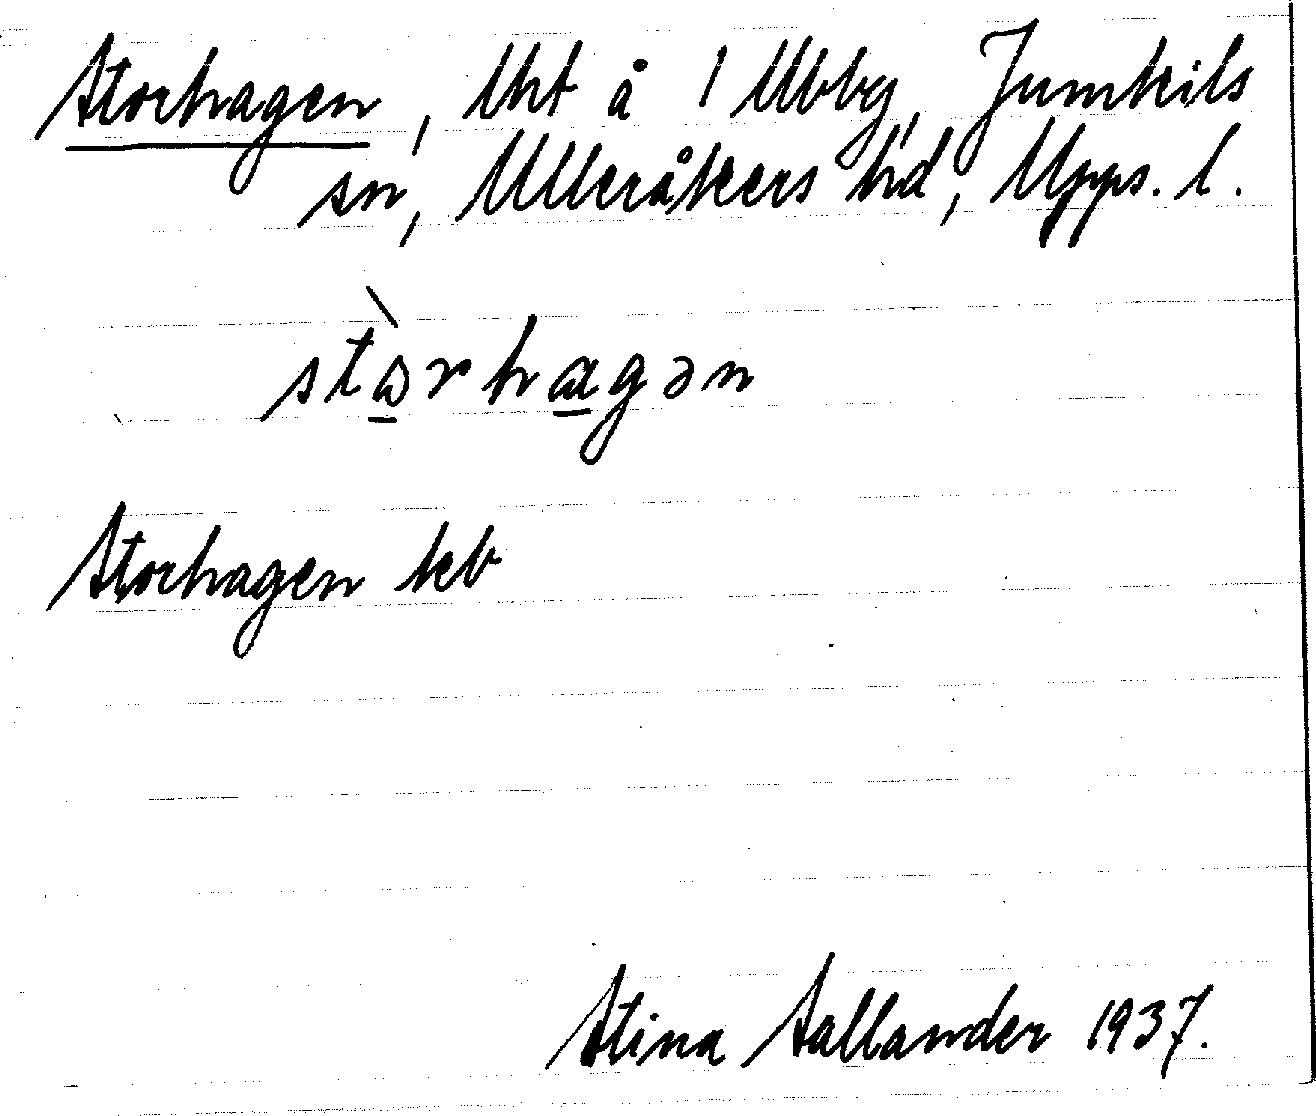 Storhagen, Lht å 1 Ubby, Jumkils
sn, Ulleråkers hd, Upps. l.
stɷ̀rhagən
Storhagen keb
Stina Sallander 1937.